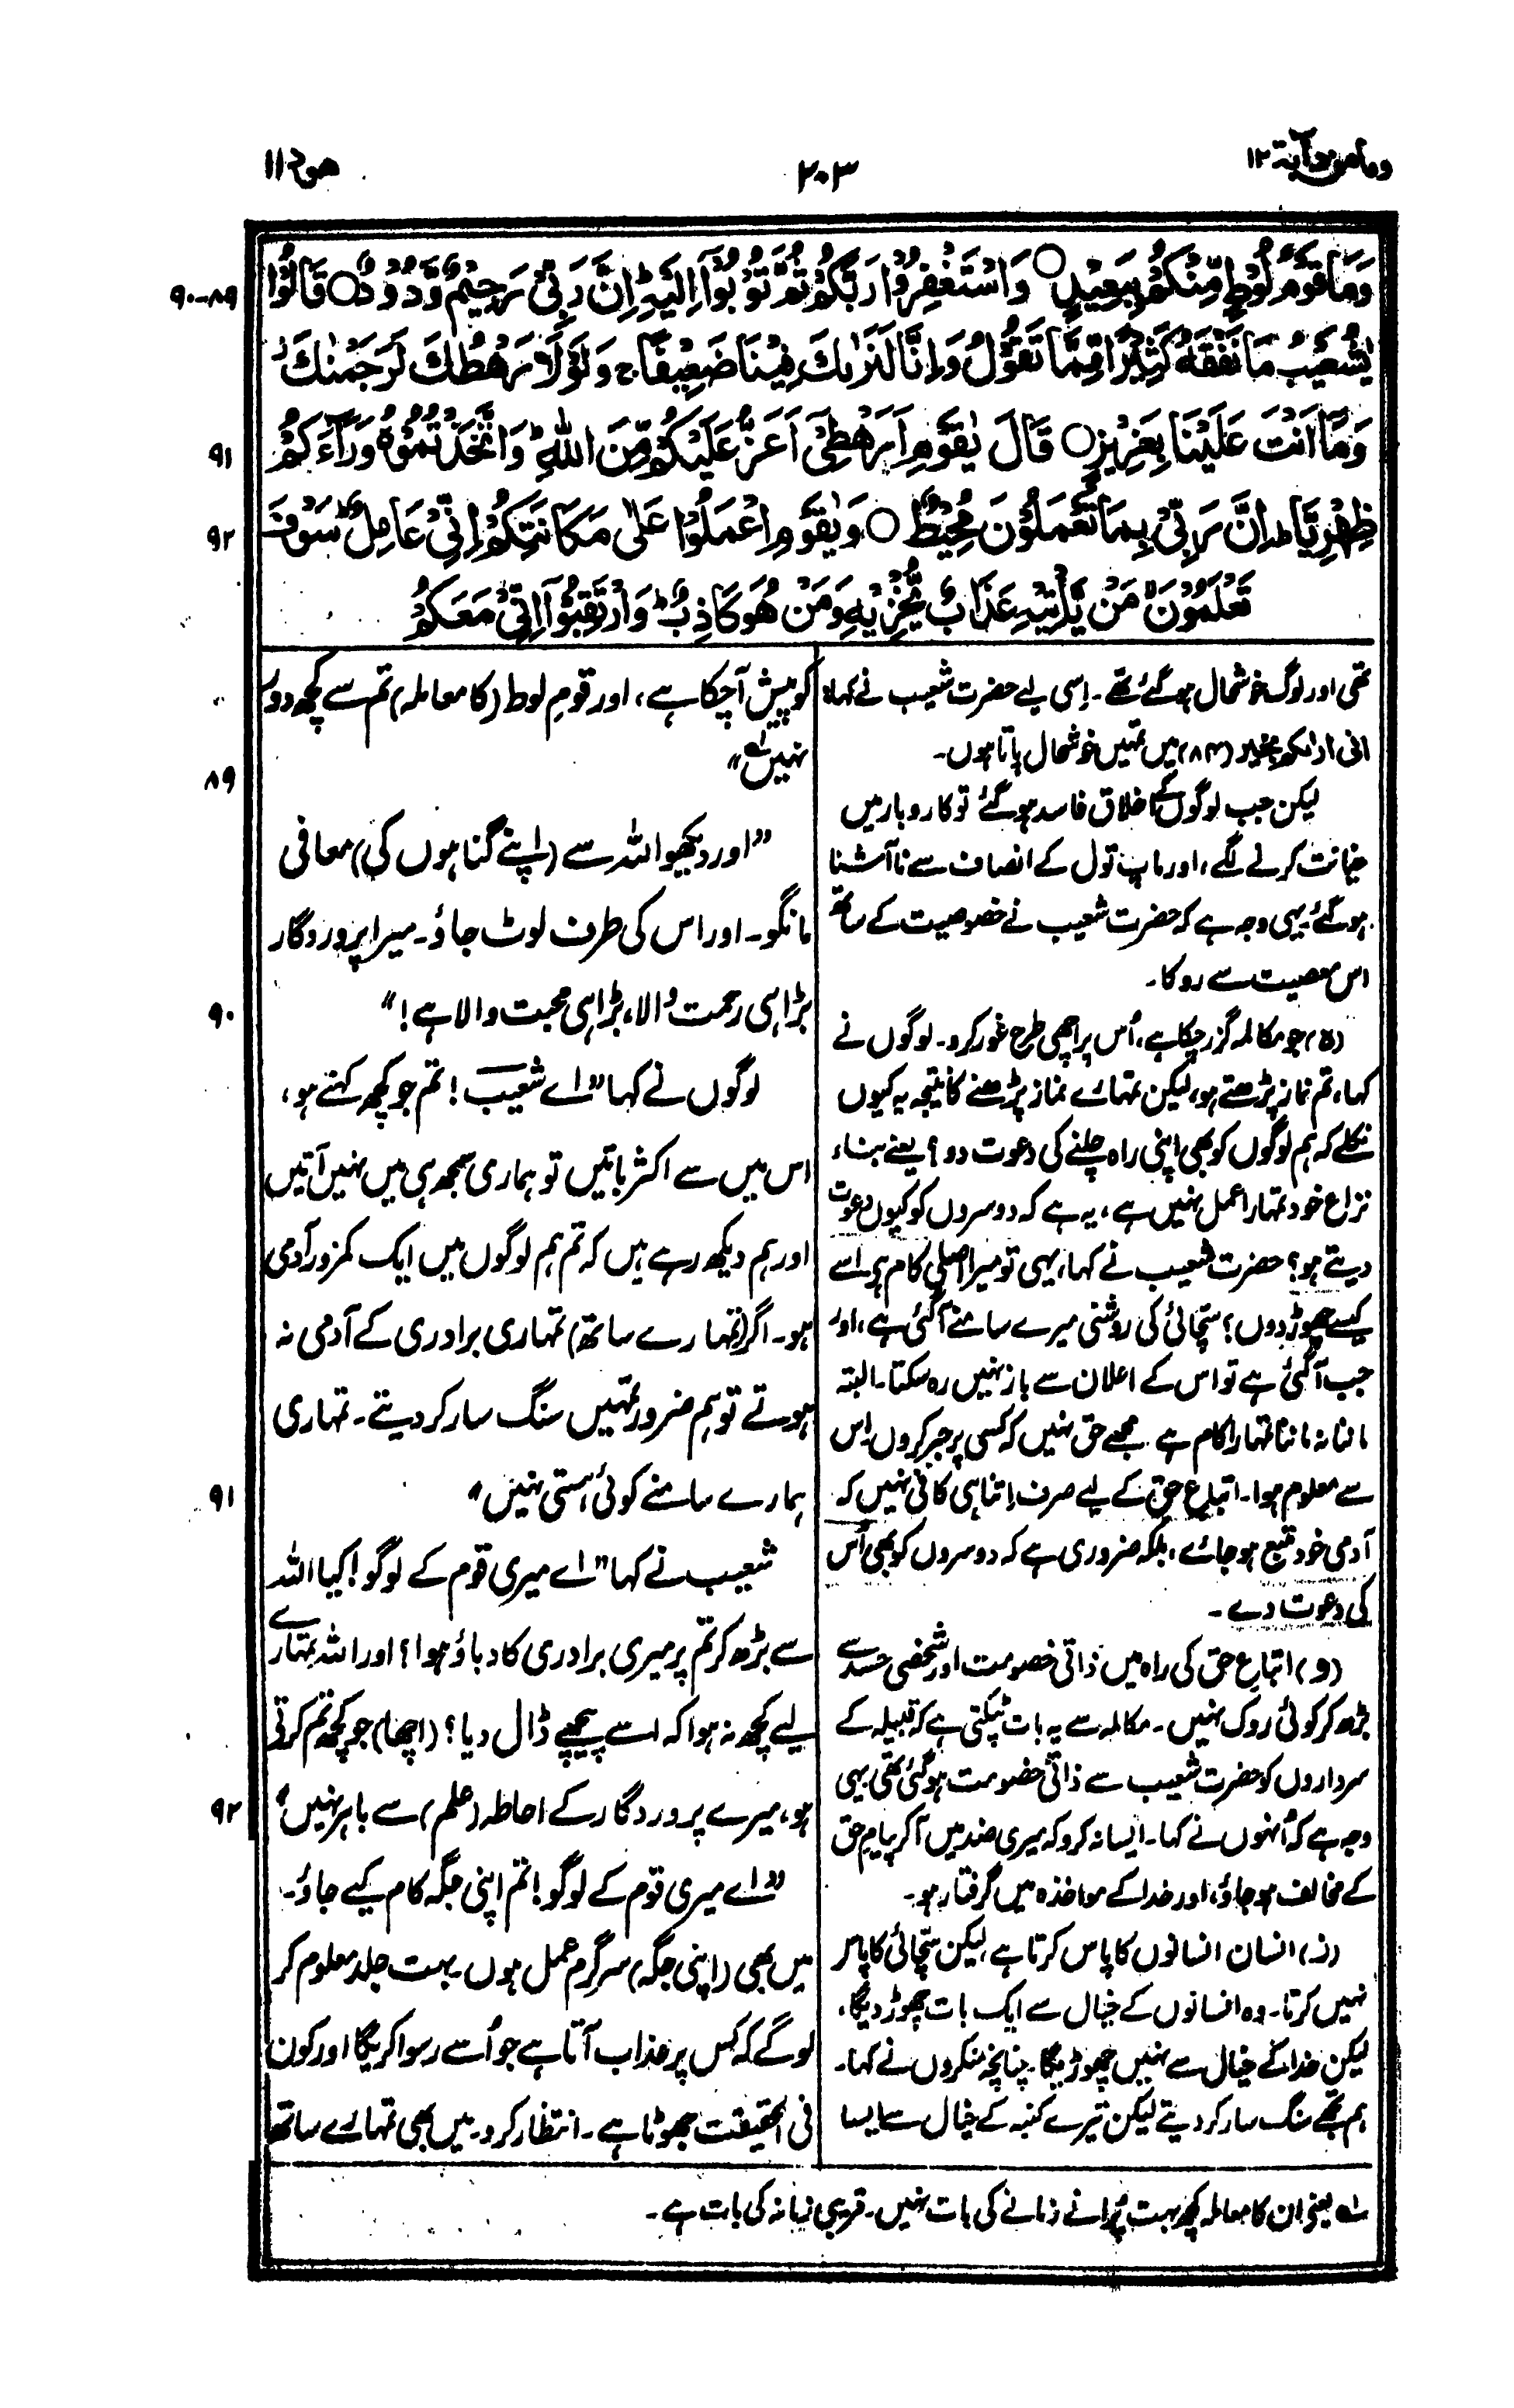 ومامن دآبة ١٢
٢٠٣
هود ١١
وَمَا قَوْمُ لُوْطٍ مِّنْكُمْ بِبَعِيْدٍ ○ وَاسْتَغْفِرُوْا رَبَّكُمْ ثُمَّ تُوْبُوْٓا اِلَيْهِ ؕ اِنَّ رَبِّيْ رَحِيْمٌ وَّدُوْدٌ ○ قَالُوْا
٨٩-٩٠
يٰشُعَيْبُ مَا نَفْقَهُ كَثِيْرًا مِّمَّا تَقُوْلُ وَاِنَّا لَنَرٰىكَ فِيْنَا ضَعِيْفًا ج وَلَوْلَا رَهْطُكَ لَرَجَمْنٰكَ
وَمَآ اَنْتَ عَلَيْنَا بِعَزِيْزٍ ○ قَالَ يٰقَوْمِ اَرَهْطِيْٓ اَعَزُّ عَلَيْكُمْ مِّنَ اللّٰهِ ؕ وَاتَّخَذْتُمُوْهُ وَرَآءَكُمْ
٩١
ظِهْرِيًّا ؕ اِنَّ رَبِّيْ بِمَا تَعْمَلُوْنَ مُحِيْطٌ ○ وَيٰقَوْمِ اعْمَلُوْا عَلٰى مَكَانَتِكُمْ اِنِّيْ عَامِلٌ ؕ سَوْفَ
٩٢
تَعْلَمُوْنَ ۙ مَنْ يَّاْتِيْهِ عَذَابٌ يُّخْزِيْهِ وَمَنْ هُوَ كَاذِبٌ ؕ وَارْتَقِبُوْٓا اِنِّيْ مَعَكُمْ
تھی اور لوگ خوشحال ہو گئے تھے۔ اِسی لیے حضرت شعیب نے کہا:
انی اراکم بخیر (٨٤) میں تمہیں خوشحال پاتا ہوں۔
لیکن جب لوگوں کے اخلاق فاسد ہو گئے تو کاروبار میں
خیانت کرنے لگے، اور ماپ تول کے انصاف سے ناآشنا
ہو گئے۔ یہی وجہ ہے کہ حضرت شعیب نے خصوصیت کے ساتھ
اس معصیت سے روکا۔
(ہ) جو مکالمہ گزر چکا ہے، اُس پر اچھی طرح غور کرو۔ لوگوں نے
کہا، تم نماز پڑھتے ہو، لیکن تمہارے نماز پڑھنے کا نتیجہ یہ کیوں
نکلے کہ ہم لوگوں کو بھی اپنی راہ چلنے کی دعوت دو؟ یعنے بناء
نزاع خود تمہارا عمل نہیں ہے، یہ ہے کہ دوسروں کو کیوں دعوت
دیتے ہو؟ حضرت شعیب نے کہا، یہی تو میرا اصلی کام ہے، اسے
کیسے چھوڑ دوں؟ سچائی کی روشنی میرے سامنے آ گئی ہے، اور
جب آگئی ہے تو اس کے اعلان سے باز نہیں رہ سکتا۔ البتہ
ماننا نہ ماننا تمہارا کام ہے۔ مجھے حق نہیں کہ کسی پر جبر کروں۔ اِس
سے معلوم ہوا۔ اتباعِ حق کے لیے صرف اِتنا ہی کافی نہیں کہ
آدمی خود متبع ہو جائے، بلکہ ضروری ہے کہ دوسروں کو بھی اُس
کی دعوت دے۔
(و) اتباعِ حق کی راہ میں ذاتی خصومت اور شخصی حسد سے
بڑھ کر کوئی روک نہیں۔ مکالمہ سے یہ بات ٹپکتی ہے کہ قبیلہ کے
سرداروں کو حضرت شعیب سے ذاتی خصومت ہو گئی تھی یہی
وجہ ہے کہ اُنہوں نے کہا۔ ایسا نہ کرو کہ میری ضد میں آ کر پیامِ حق
کے مخالف ہو جاؤ، اور خدا کے مواخذہ میں گرفتار ہو۔
(ز) انسان انسانوں کا پاس کرتا ہے، لیکن سچائی کا پاس
نہیں کرتا۔ وہ انسانوں کے خیال سے ایک بات چھوڑ دیگا،
لیکن خدا کے خیال سے نہیں چھوڑیگا۔ چنانچہ منکروں نے کہا۔
ہم تجھے سنگ سار کر دیتے لیکن تیرے کنبہ کے خیال سے ایسا
کو پیش آچکا ہے، اور قومِ لوط (کا معاملہ) تم سے کچھ دور
نہیں؂"
٨٩
"اور دیکھو اللہ سے (اپنے گناہوں کی) معافی
مانگو۔ اور اس کی طرف لوٹ جاؤ۔ میرا پروردگار
بڑا ہی رحمت والا، بڑا ہی محبت والا ہے!"
٩٠
لوگوں نے کہا "اے شعیب! تم جو کچھ کہتے ہو،
اس میں سے اکثر باتیں تو ہماری سمجھ ہی میں نہیں آتیں
اور ہم دیکھ رہے ہیں کہ تم ہم لوگوں میں ایک کمزور آدمی
ہو۔ اگر (تمہارے ساتھ) تمہاری برادری کے آدمی نہ
ہوتے تو ہم ضرور تمہیں سنگ سار کر دیتے۔ تمہاری
ہمارے سامنے کوئی ہستی نہیں"
٩١
شعیب نے کہا "اے میری قوم کے لوگو! کیا اللہ
سے بڑھ کر تم پر میری برادری کا دباؤ ہوا؟ اور اللہ تمہارے
لیے کچھ نہ ہوا کہ اسے پیچھے ڈال دیا؟ (اچھا) جو کچھ تم کرتے
ہو، میرے پروردگار کے احاطہ (علم) سے باہر نہیں"
٩٢
"اے میری قوم کے لوگو! تم اپنی جگہ کام کیے جاؤ۔
میں بھی (اپنی جگہ) سرگرمِ عمل ہوں۔ بہت جلد معلوم کر
لوگے کہ کس پر عذاب آتا ہے جو اُسے رسوا کریگا اور کون
فی الحقیقت جھوٹا ہے۔ انتظار کرو۔ میں بھی تمہارے ساتھ
؂١ یعنی ان کا معاملہ کچھ بہت پُرانے زمانے کی بات نہیں۔ قریبی زمانہ کی بات ہے۔